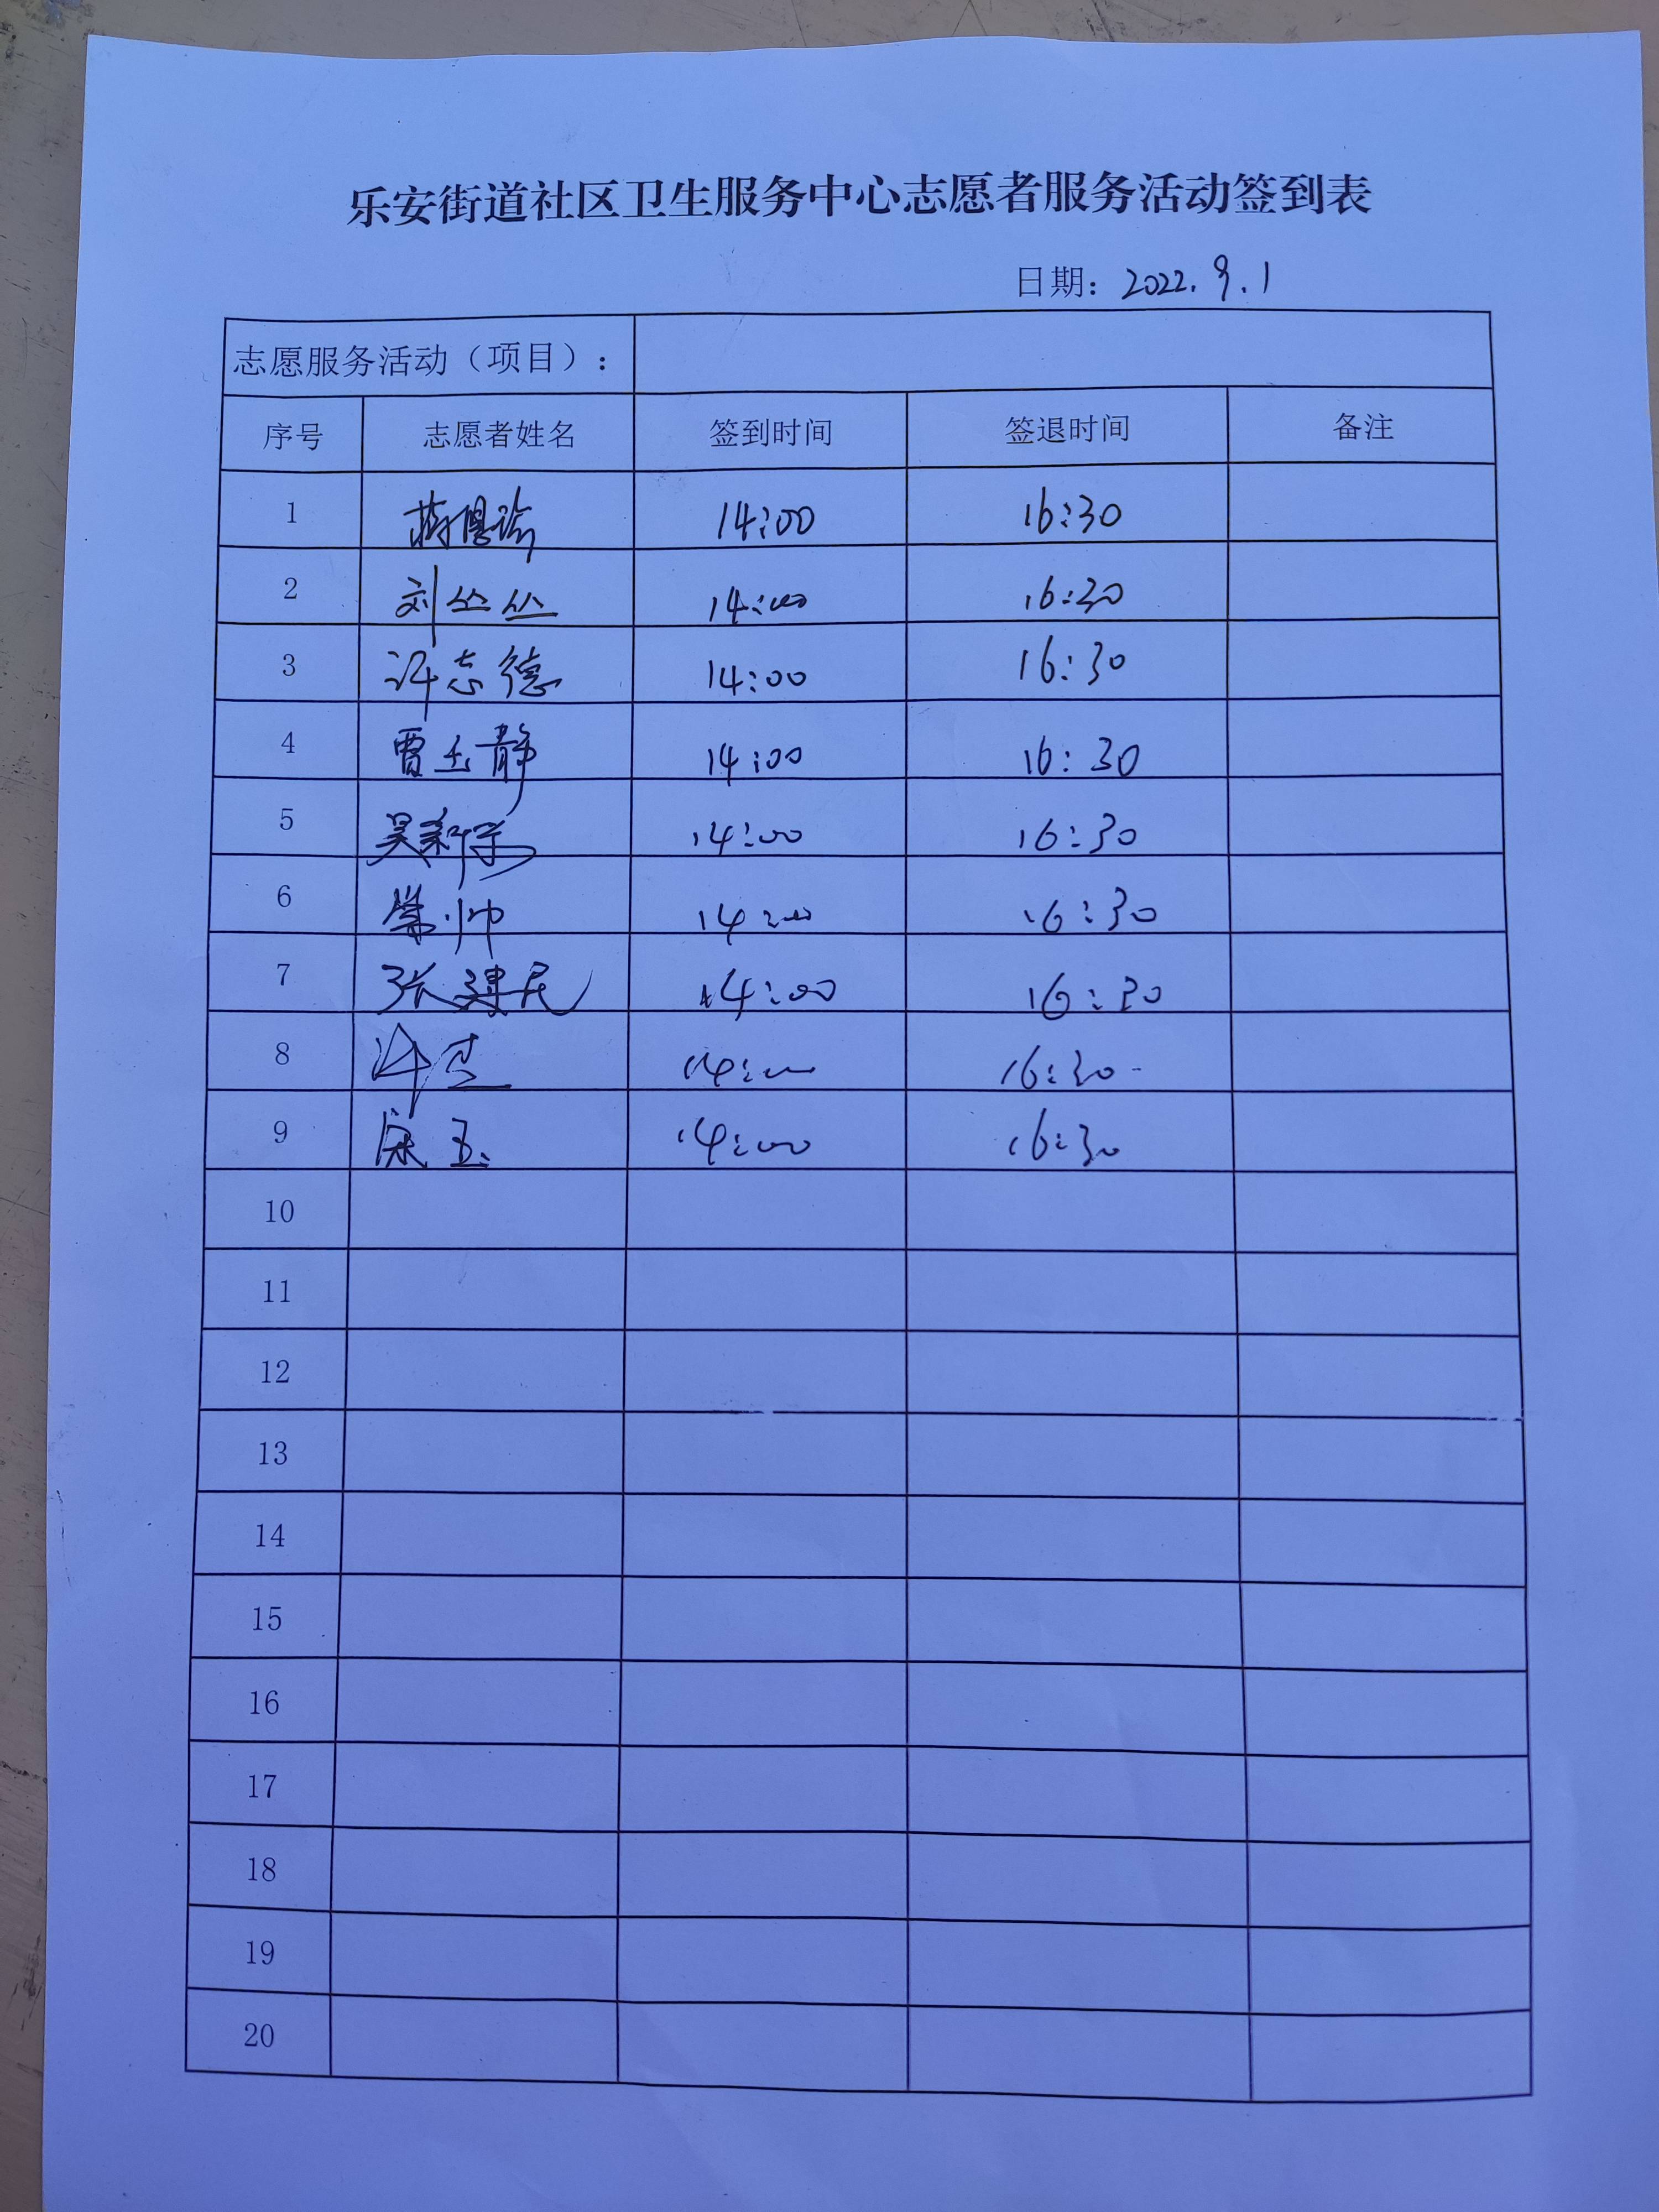 乐安街道社区卫生服务中心志愿者服务活动签到表
日期: 2022.9.1
志愿服务活动（项目）:
序号 志愿者姓名 签到时间 签退时间 备注
1 14:00 16:30
2 刘丛丛 14:00 16:30
3 许志德 14:00 16:30
4 贾玉静 14:00 16:30
5 吴新 14:00 16:30
6 常帅 14:00 16:30
7 张建民 14:00 16:30
8 许 14:00 16:30
9 宋玉 14:00 16:30
10
11
12
13
14
15
16
17
18
19
20